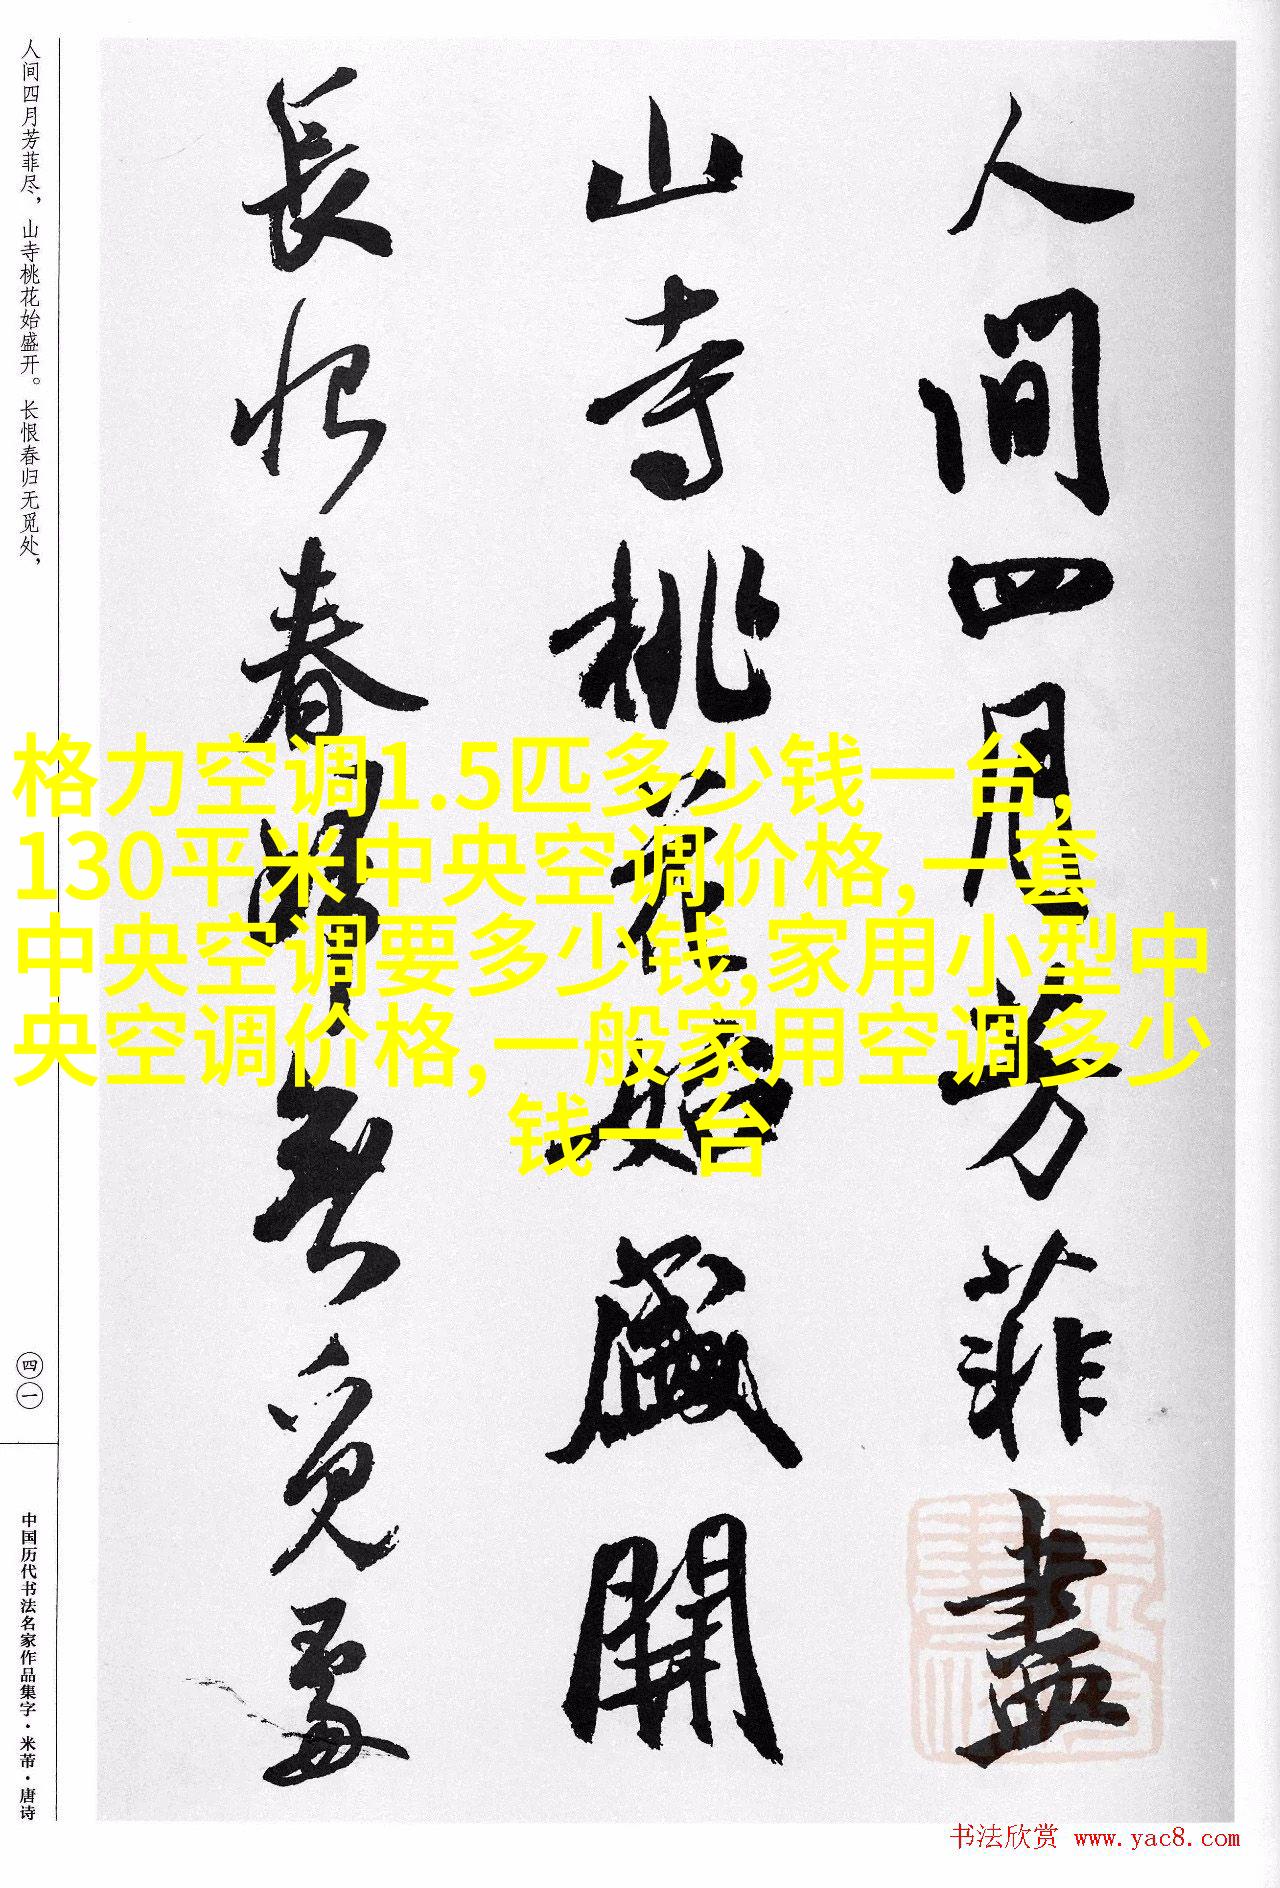 人间四月芳菲尽，山寺桃花始盛开。长恨春归无觅处，
人間四月芳菲盡
山寺桃花始盛開
長恨春歸無覓處
格力空调1.5匹多少钱一台,
130平米中央空调价格,一套
中央空调要多少钱,家用小型中
央空调价格,一般家用空调多少
钱一台
四一
中国历代书法名家作品集字·米芾·唐诗
书法欣赏 www.yac8.com